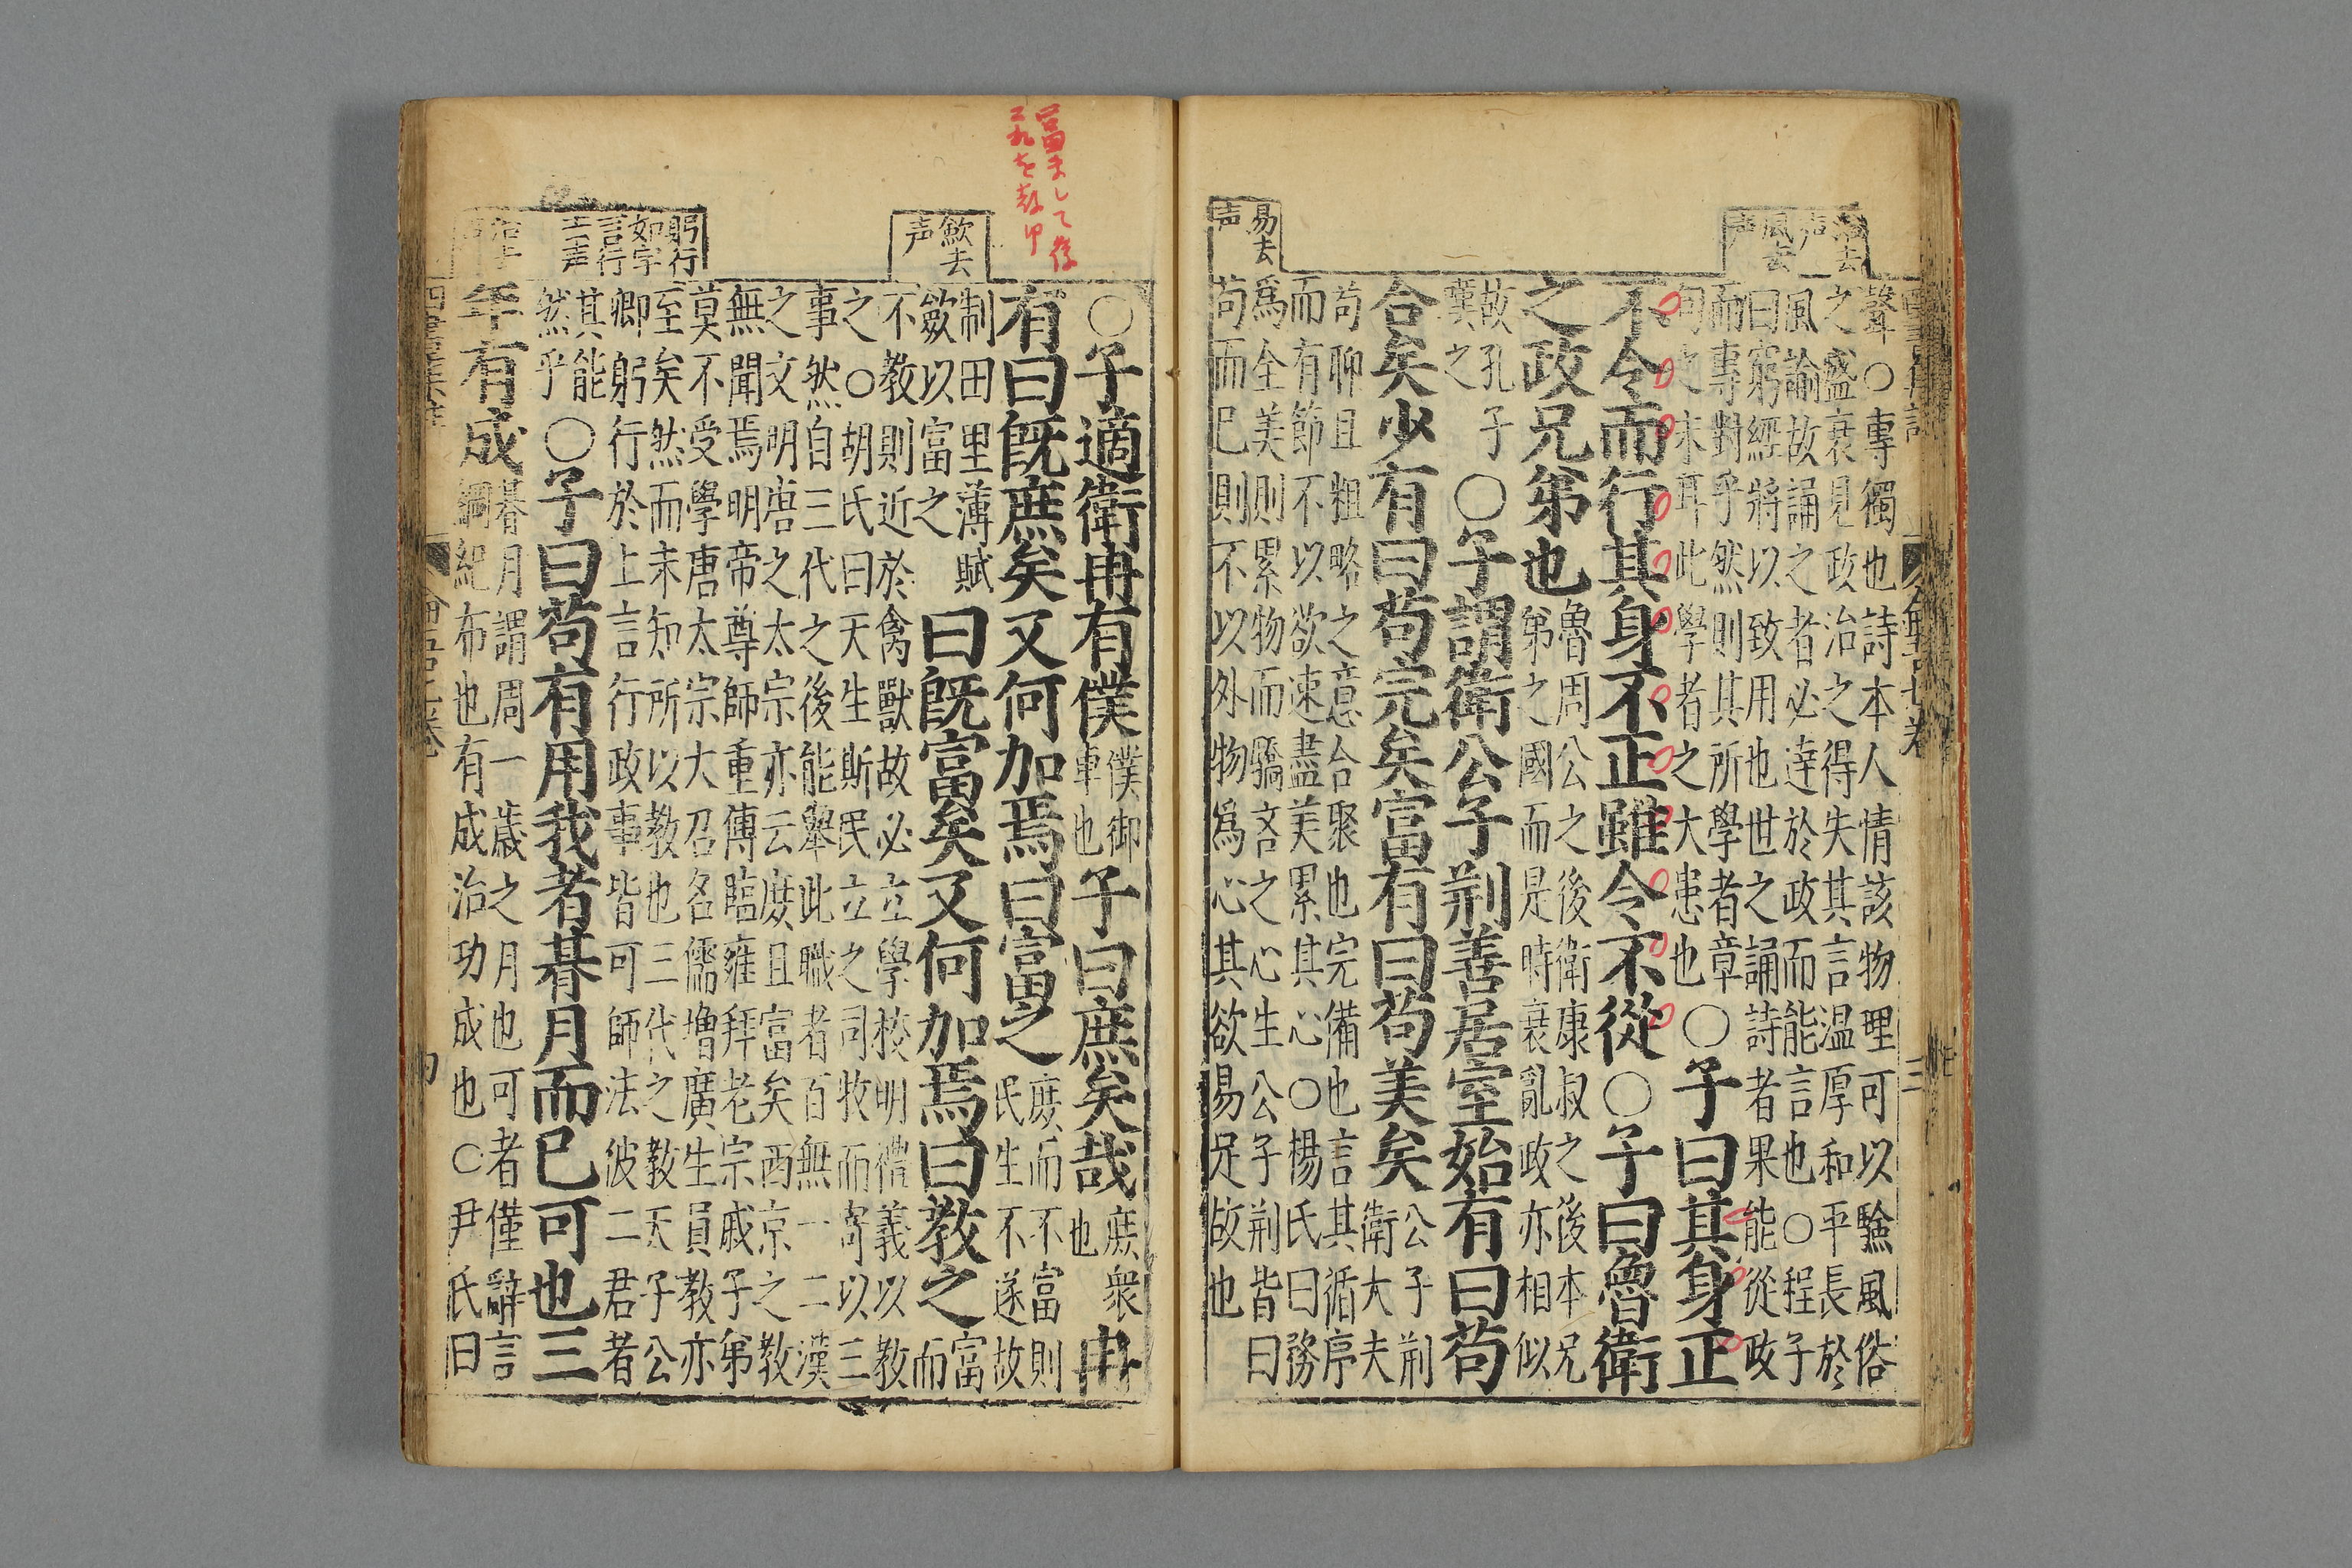 易去
声
聲○專獨也詩本人情該物理可以驗風俗
之盛衰見政治之得失其言温厚和平長於
風諭故誦之者必達於政而能言也○程子
曰窮經將以致用也世之誦詩者果能從政
而專對乎然則其所學者章
句之末耳此學者之大患也
○子曰其身正
不令而行其身不正雖令不從○子曰魯衛
之政兄弟也
魯周公之後衛康叔之後本兄
弟之國而是時衰亂政亦相似
故孔子
嘆之
○子謂衛公子荆善居室始有曰苟
合矣少有曰苟完矣富有曰苟美矣
公子荆
衛大夫
苟聊且粗略之意合聚也完備也言其循序
而有節不以欲速盡美累其心○楊氏曰務
爲全美則累物而驕吝之心生公子荆皆曰
苟而已則不以外物爲心其欲易足故也
富まして後
これを教ゆ
歛去
声
躬行
如字
言行
去声
○子適衛冉有僕
僕御
車也
子曰庶矣哉
庶衆
也
冉
有曰既庶矣又何加焉曰富之
庶而不富則
民生不遂故
制田里薄賦
斂以富之
曰既富矣又何加焉曰教之
富
而
不教則近於禽獸故必立學校明禮義以教
之○胡氏曰天生斯民立之司牧而寄以三
事然自三代之後能舉此職者百無一二漢
之文明唐之太宗亦云庶且富矣西京之教
無聞焉明帝尊師重傅臨雍拜老宗戚子弟
莫不受學唐太宗大召名儒增廣生員教亦
至矣然而未知所以教也三代之教天子公
卿躬行於上言行政事皆可師法彼二君者
其能
然乎
○子曰苟有用我者朞月而已可也三
年有成
朞月謂周一歲之月也可者僅辭言
綱紀布也有成治功成也○尹氏曰